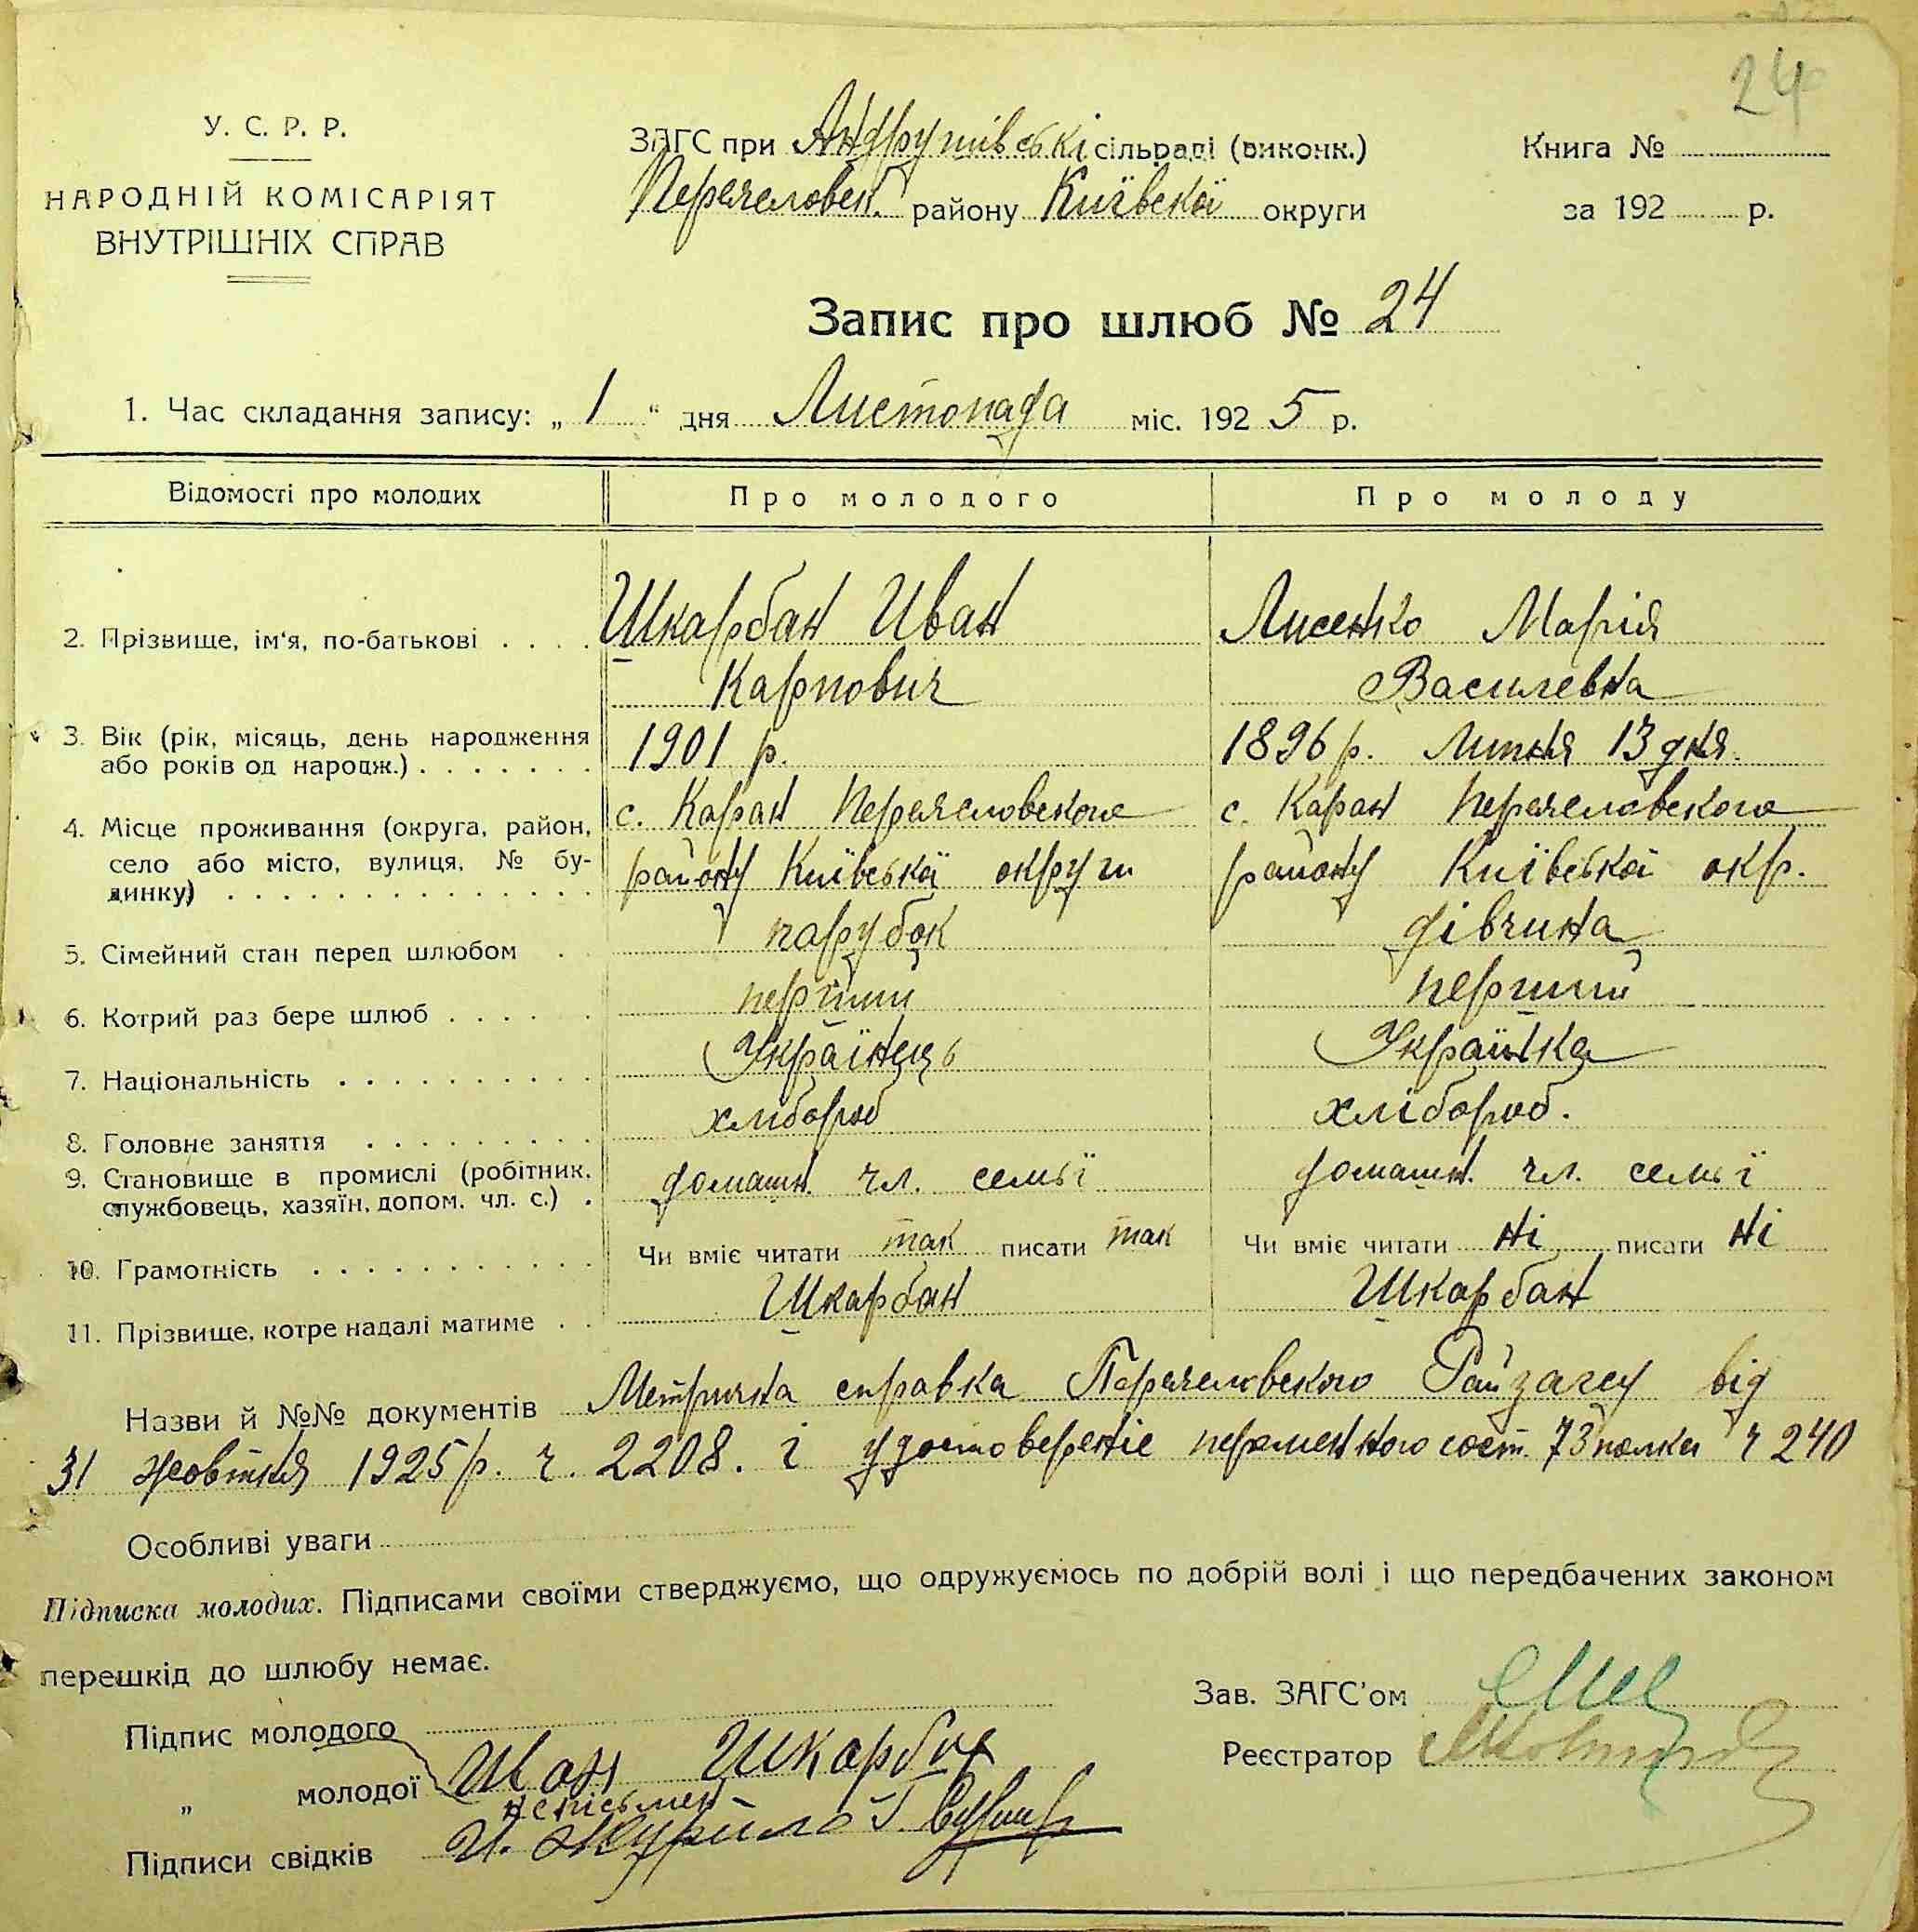 24
У. С. Р. Р.
НАРОДНІЙ КОМІСАРІЯТ
ВНУТРІШНІХ СПРАВ
ЗАГС при Андрушівські сільраді (виконк.)
Переясловськ. району Київської округи
Книга №
за 192 р.
Запис про шлюб № 24
1. Час складання запису: „ 1 “ дня Листопада міс. 1925 р.
Відомості про молодих Про молодого Про молоду
2. Прізвище, ім'я, по-батькові Шкарбан Иван Лисенко Марія
Карпович Василевна
3. Вік (рік, місяць, день народження 1901 р. 1896 р. Липня 13 дня.
або років од народж.)
с. Каран Переяєловского с. Каран Переяєловского
4. Місце проживання (округа, район, село або місто, вулиця, № бу-
динку) району Київської округи району Київської окр.
5. Сімейний стан перед шлюбом парубок дівчина
6. Котрий раз бере шлюб перший перший
7. Національність Українець Українка
8. Головне заняття хлібороб хлібороб.
9. Становище в промислі (робітник, домашн. чл. семьї домашн. чл. семьї
службовець, хазяїн, допом. чл. с.)
10. Грамотність Чи вміє читати так писати так Чи вміє читати ні писати ні
11. Прізвище, котре надалі матиме Шкарбан Шкарбан
Назви й №№ документів Метрична справка Переяєловского Райзагсу від
31 жовтня 1925 р. ч. 2208. і удостовереніе перемен­ного сост. 73 полка ч 240
Особливі уваги
Підписка молодих. Підписами своїми стверджуємо, що одружуємось по добрій волі і що передбачених законом
перешкід до шлюбу немає.
Зав. ЗАГС'ом
Підпис молодого
Реєстратор
„ молодої Иван Шкарбан
неписьмен
Підписи свідків И. Журило Г.